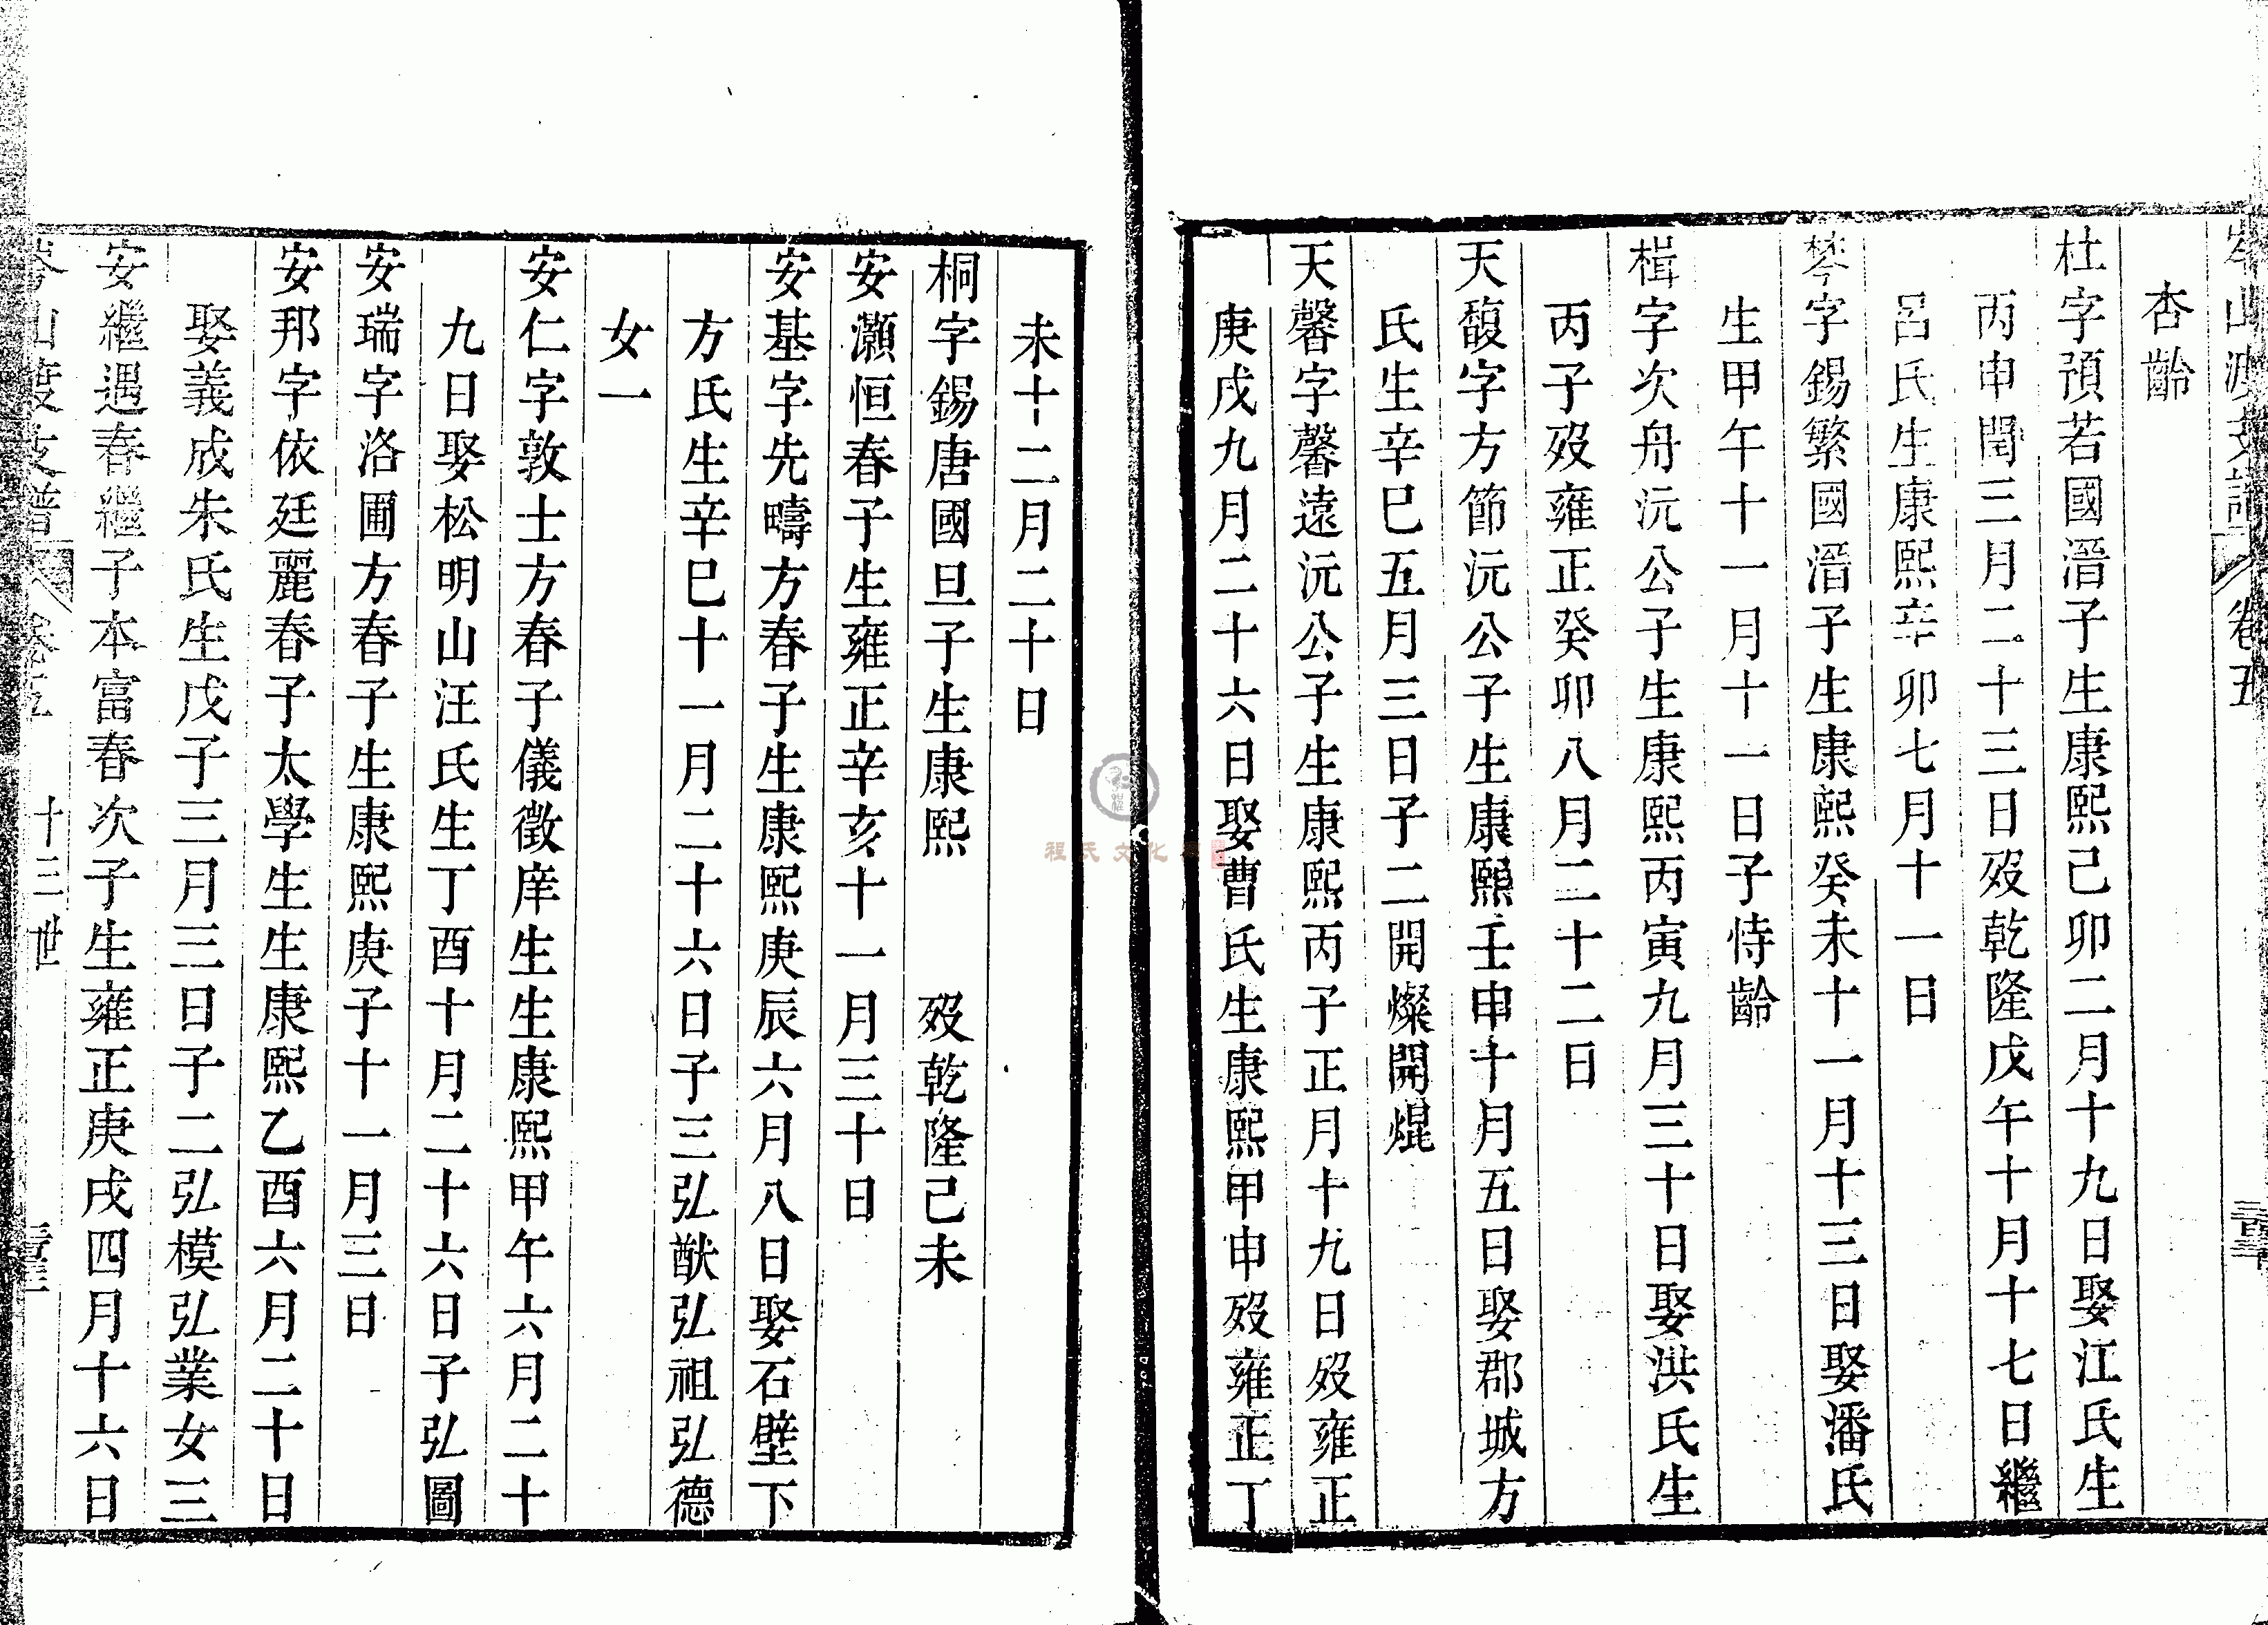 杏齡
杜字預若國溍子生康熙己卯二月十九日娶江氏生
丙申閏三月二十三日歿乾隆戊午十月十七日繼
呂氏生康熙辛卯七月十一日
棽字錫繁國溍子生康熙癸未十一月十三日娶潘氏
生甲午十一月十一日子恃齡
楫字次舟沅公子生康熙丙寅九月三十日娶洪氏生
丙子歿雍正癸卯八月二十二日
天馥字方節沅公子生康熙壬申十月五日娶郡城方
氏生辛巳五月三日子二開燦開焜
天馨字馨遠沅公子生康熙丙子正月十九日歿雍正
庚戌九月二十六日娶曹氏生康熙甲申歿雍正丁
未十二月二十日
桐字錫唐國旦子生康熙 歿乾隆己未
安灝恒春子生雍正辛亥十一月三十日
安基字先疇方春子生康熙庚辰六月八日娶石壁下
方氏生辛巳十一月二十六日子三弘猷弘祖弘德
女一
安仁字敦士方春子儀徵庠生生康熙甲午六月二十
九日娶松明山汪氏生丁酉十月二十六日子弘圖
安瑞字洛圃方春子生康熙庚子十一月三日
安邦字依廷麗春子太學生生康熙乙酉六月二十日
娶義成朱氏生戊子三月三日子二弘模弘業女三
安繼遇春繼子本富春次子生雍正庚戌四月十六日
十三世